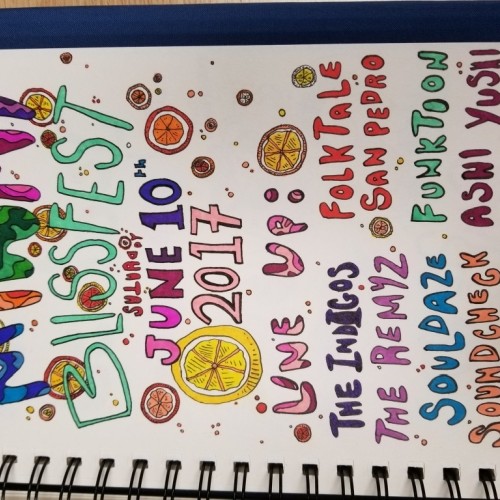 BLISSFEST
SATURDAY
JUNE 10th
2017
LINE UP:
THE INDIGOS FOLKTALE
THE REMYZ SAN PEDRO
SOULDAZE FUNKTOON
SOUNDCHECK ASHI YUSHI